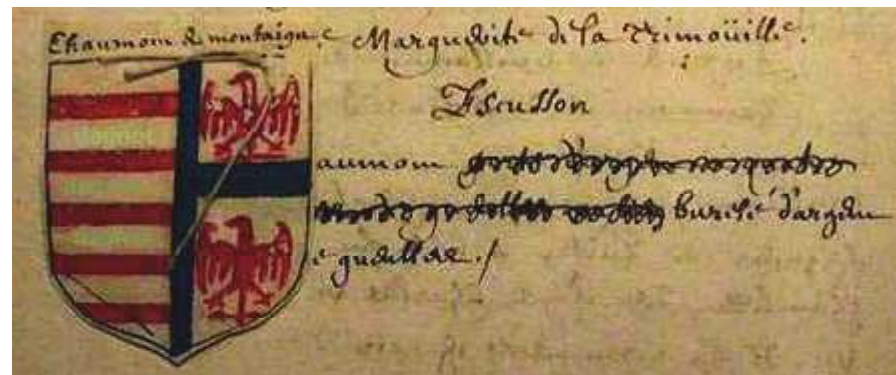 Chaumom & montaigu & Marguerite de la Trimoüille.
Escusson
aumom
burelé d'argen
e gueulles./